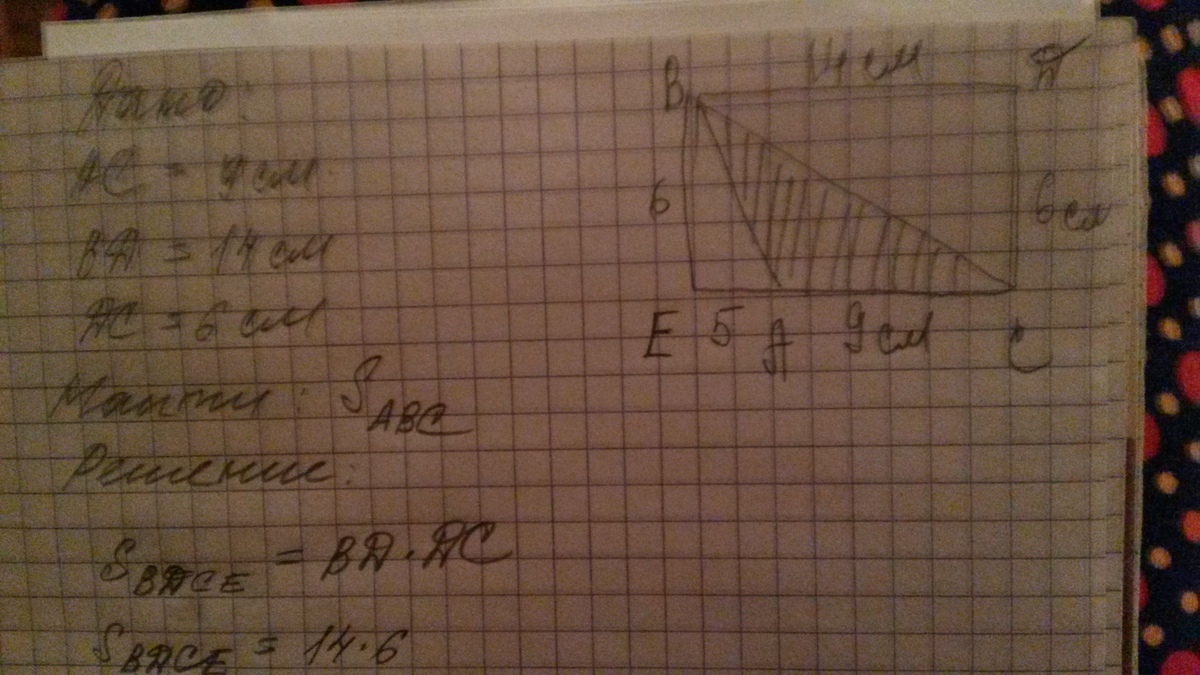 Дано:
АС = 9 см
ВД = 14 см
ДС = 6 см
Найти: S_ABC
Решение:
S_ВДСЕ = ВД · ДС
S_ВДСЕ = 14 · 6
В 14 см Д
6 6 см
Е 5 А 9 см С